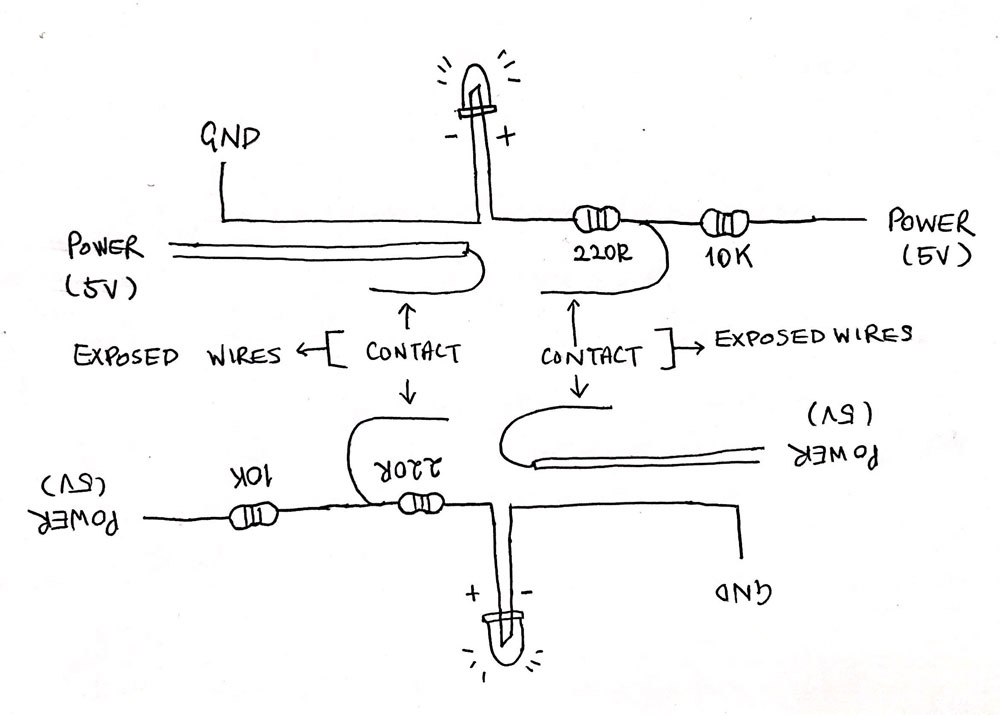 GND
- +
POWER
(5V)
220R
10K
POWER
(5V)
EXPOSED WIRES
CONTACT
CONTACT
EXPOSED WIRES
(5V)
POWER
10K
220R
(5V)
POWER
+ -
GND